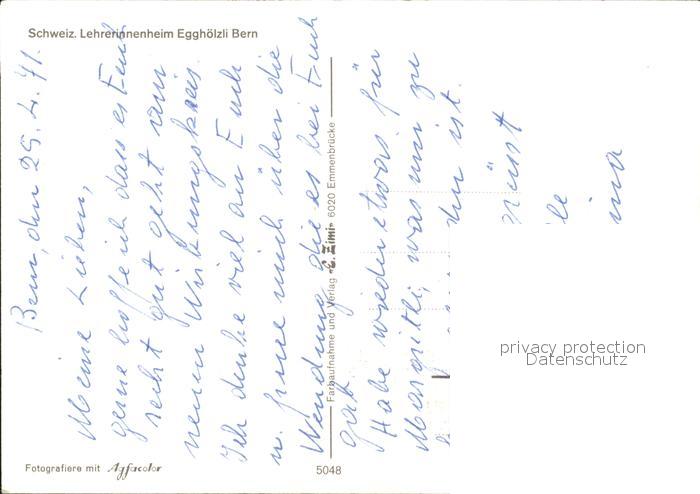 Schweiz. Lehrerinnenheim Egghölzli Bern
Bern, den 29. 4. 71.
Meine Lieben,
gerne hoffe ich dass es Euch
recht gut geht am
neuen Wirkungskreis.
Ich denke viel an Euch
u. freue mich über die
Wendung die es bei Euch
gab.
Habe wieder etwas für
Margritli, was mir zu
ist.
Farbaufnahme und Verlag "E. Zimi" 6020 Emmenbrücke
privacy protection
Datenschutz
Fotografiere mit Agfacolor
5048